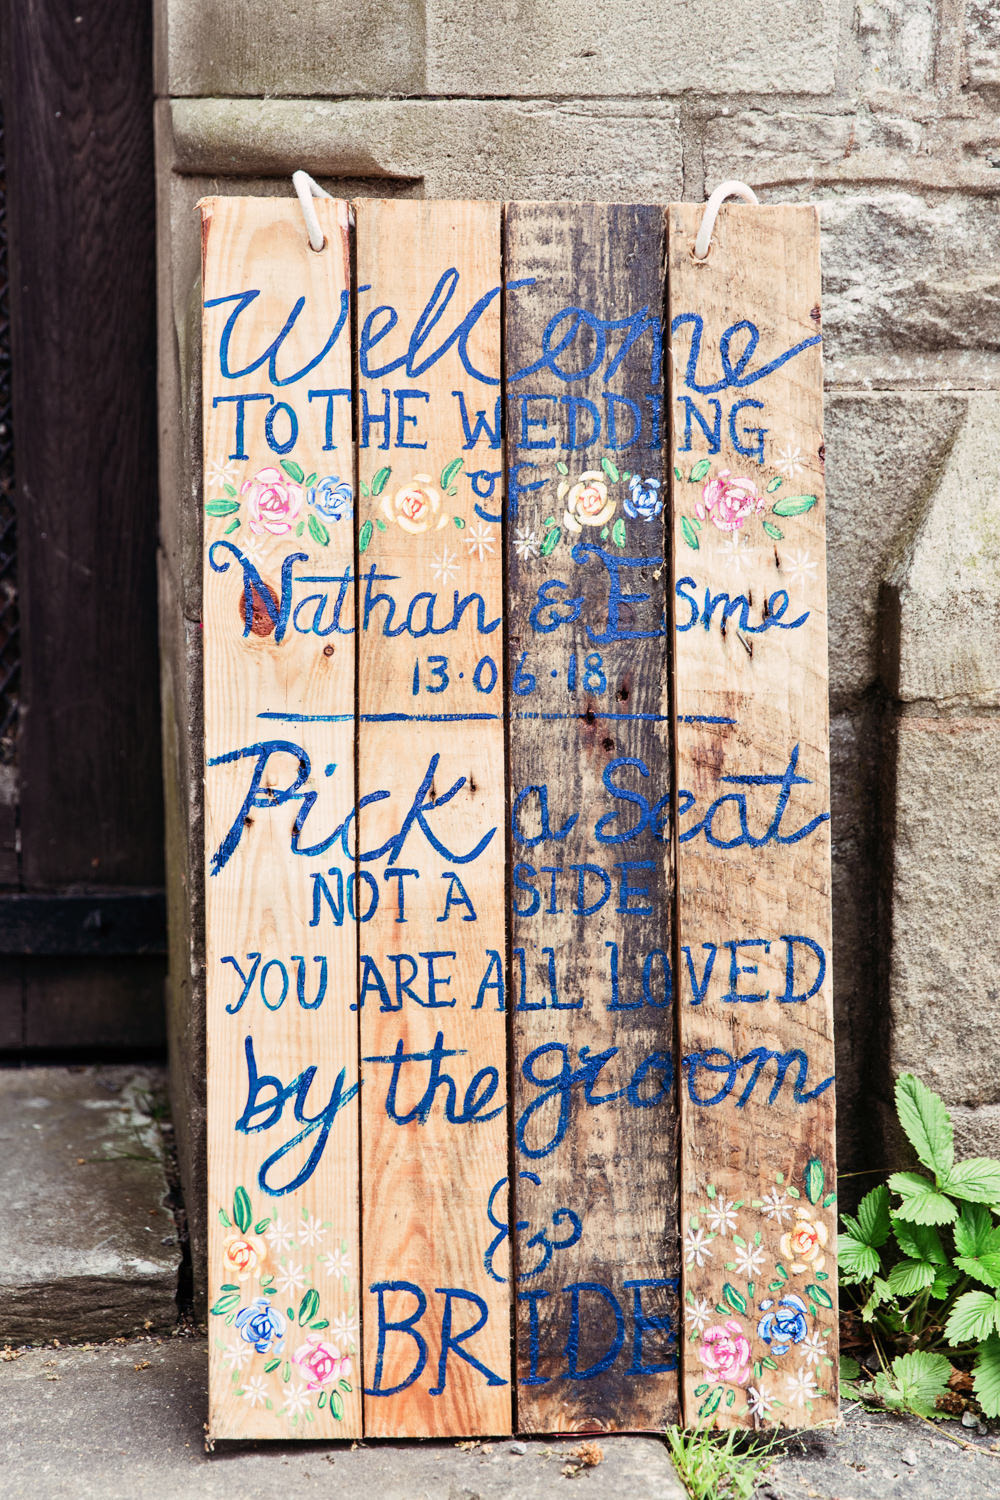 Welcome
TO THE WEDDING
of
Nathan & Esme
13·06·18
Pick a Seat
NOT A SIDE
YOU ARE ALL LOVED
by the groom
&
BRIDE